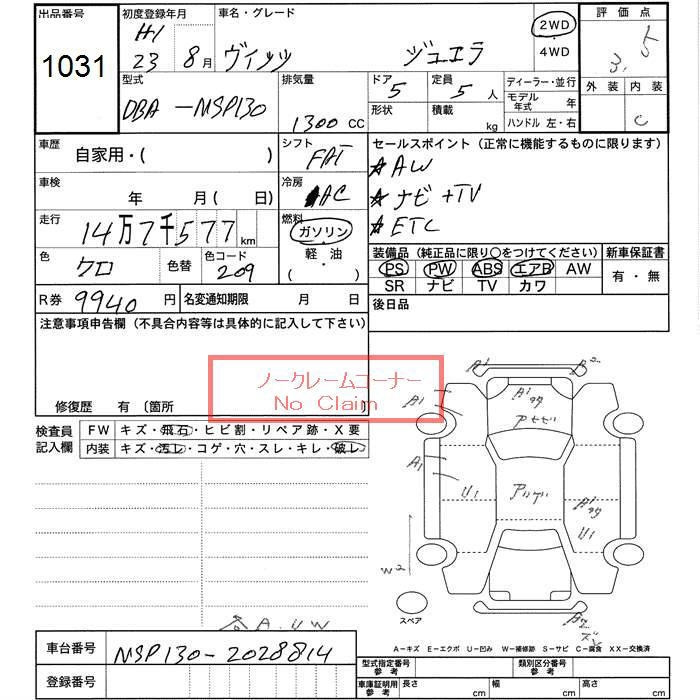 出品番号 初度登録年月 車名・グレード 評価点
1031
H
23 8月 ヴィッツ ジュエラ 2WD 4WD 3.5
型式 排気量 ドア 定員 ディーラー・並行 外装 内装
DBA-NSP130 1300cc 5 5人 モデル年式 年
形状 積載 kg ハンドル 左・右 C
車歴 自家用・( ) シフト FAT セールスポイント(正常に機能するものに限ります)
☆AW
車検 年 月(日) 冷房 AC ☆ナビ+TV
走行 14万7千577km 燃料 ガソリン ☆ETC
軽油
( )
色 クロ 色替 色コード 209 装備品(純正品に限り○をつけてください) 新車保証書
PS PW ABS エアB AW 有・無
SR ナビ TV カワ
R券 9940円 名変通知期限 月 日 後日品
注意事項申告欄(不具合内容等は具体的に記入して下さい)
ノークレームコーナー
No Claim
修復歴 有〔箇所
検査員記入欄 FW キズ・飛石・ヒビ割・リペア跡・X要
内装 キズ・汚レ・コゲ・穴・スレ・キレ・破レ
A1 A2
A1 A1
A1
U1 A1
U1
W2
スペア
A.UW A2
A-キズ E-エクボ U-凹み W-補修跡 S-サビ C-腐食 XX-交換済
車台番号 NSP130-2028814
登録番号
型式指定番号 参考 類別区分番号 参考
車庫証明用 参考 長さ cm 幅 cm 高さ cm